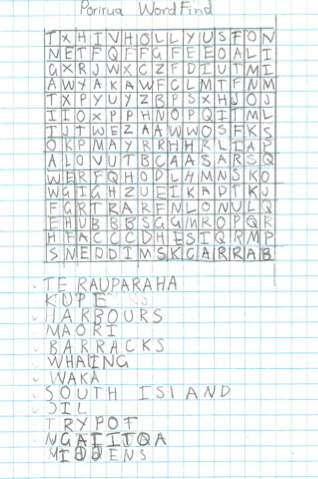 Porirua WordFind
T X H I V H O L L Y U S F O N
N E T F Q F F G F E E O A L I
G X R J W X C Z F D I U T M I
A W Y A K A W F C L M T F N M
T X P Y U Y Z B P S X H J O J
I I O X P P H N O P Q I T M L
T J T W E Z A A W W O S F K S
O K P M A Y R R H H R L I A P
A L O V U T B C A A S A R S Q
W E R F Q H O D L H M N S K O
W G I G H Z U E I K A D T K J
F G R T R A R F N L O N U L Q
E H U B B B S G G M R O P Q R
H F A C C C D H E S I Q R M P
S N E D D I M S K C A R R A B
TE RAUPARAHA
KUPE
HARBOURS
MAORI
BARRACKS
WHALING
WAKA
SOUTH ISLAND
OIL
TRYPOT
NGATITOA
MIDDENS